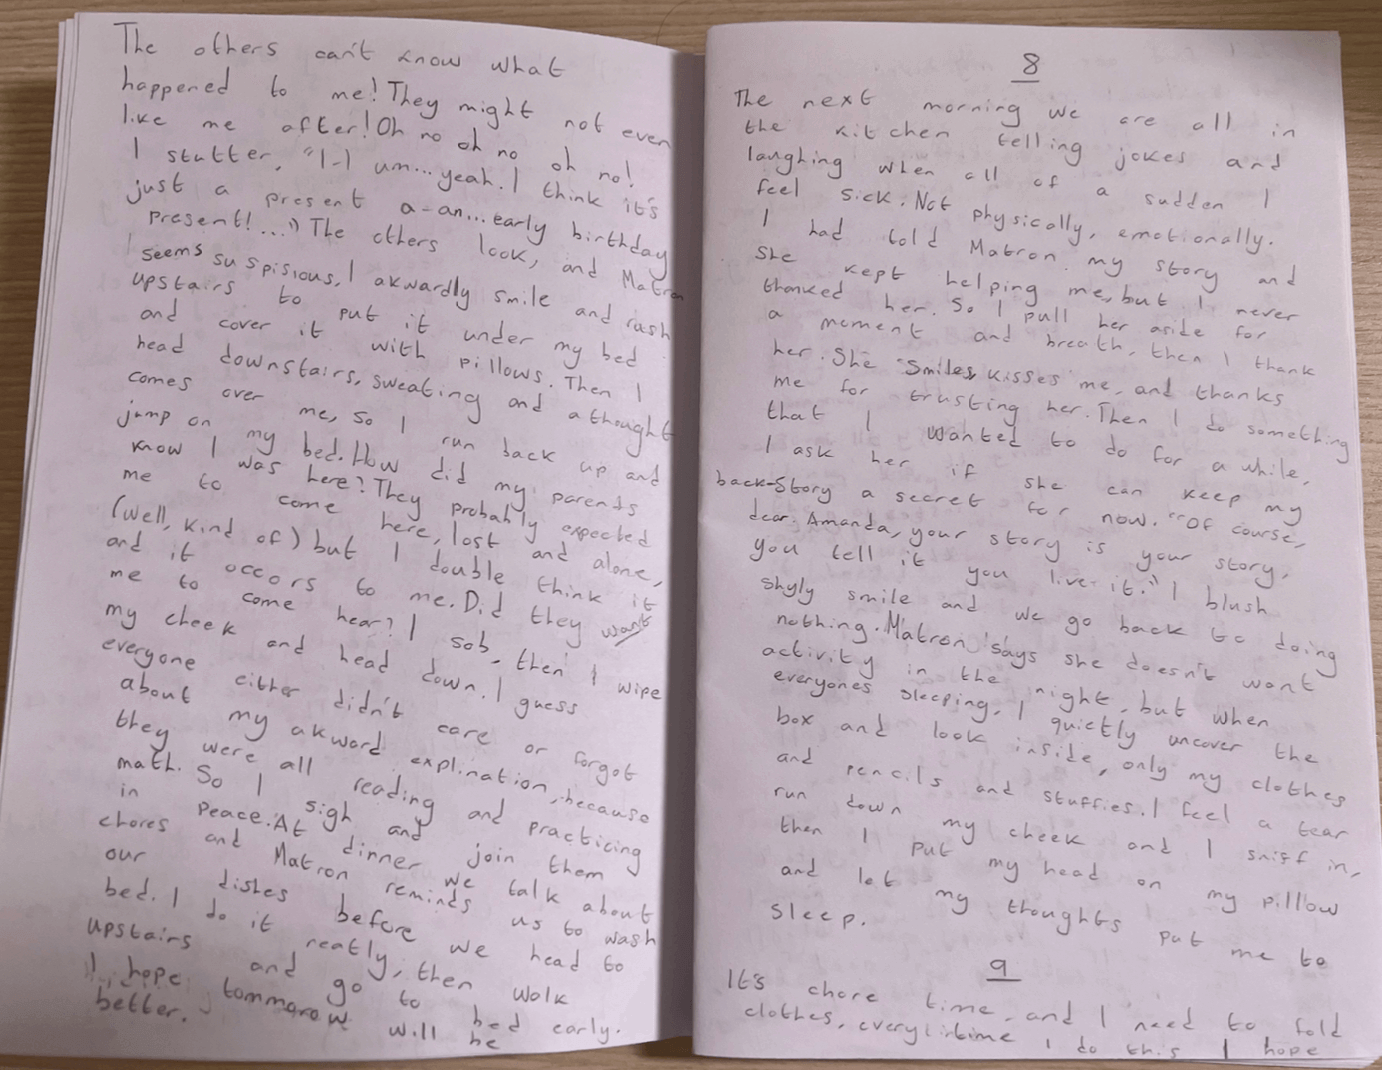 The others can't know what
happened to me! They might not even
like me after! Oh no oh no oh no!
I stutter, "I-I um... yeah. I think it's
just a present a-an... early birthday
present!..." The others look, and Matron
seems suspisious, I akwardly smile and rush
upstairs to put it under my bed
and cover it with pillows. Then I
head downstairs, sweating and a thought
comes over me, so I run back up and
jump on my bed. How did my parents
know I was here? They probably expected
me to come here, lost and alone,
(well, kind of) but I double think it
and it occors to me. Did they want
me to come hear? I sob, then I wipe
my cheek and head down. I guess
everyone either didn't care or forgot
about my akword explination, because
they were all reading and practicing
math. So I sigh and join them
in peace. At dinner we talk about
chores and Matron reminds us to wash
our dishes before we head to
bed. I do it neatly, then walk
upstairs and go to bed early.
I hope tommorow will be
better.
8
The next morning we are all in
the kitchen telling jokes and
laughing when all of a sudden I
feel sick. Not physically, emotionally.
I had told Matron my story and
she kept helping me, but I never
thanked her. So I pull her aside for
a moment and breath, then I thank
her. She smiles, kisses me, and thanks
me for trusting her. Then I do something
that I wanted to do for a while,
I ask her if she can keep my
back-story a secret for now. "Of course,
dear. Amanda, your story is your story,
you tell it you live it." I blush
shyly smile and we go back to doing
nothing. Matron says she doesn't want
activity in the night, but when
everyones sleeping, I quietly uncover the
box and look inside, only my clothes
and pencils and stuffies. I feel a tear
run down my cheek and I sniff in,
then I put my head on my pillow
and let my thoughts put me to
sleep.
9
It's chore time, and I need to fold
clothes, everytime I do this I hope